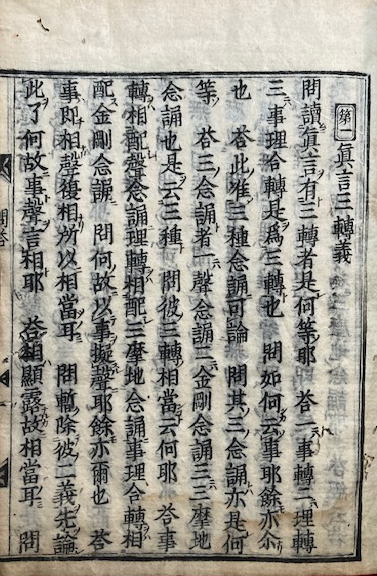 第一 眞言三轉義
問讀眞言有三轉者是何等耶 荅一事轉二理轉
三事理合轉是爲三轉也 問如何云事耶餘亦尒
也 荅此唯三種念誦可論 問其三念誦亦是何
等 荅三念誦者一聲念誦二金剛念誦三三摩地
念誦也是云三種 問彼三轉相當云何耶 荅事
轉相配聲念誦理轉相配三摩地念誦事理合轉相
配金剛念誦 問何故以事擬聲耶餘亦爾也 荅
事即相聲復相所以相當耳 問暫除彼二義先論
此了何故事聲言相耶 荅相顯露故相當耳 問